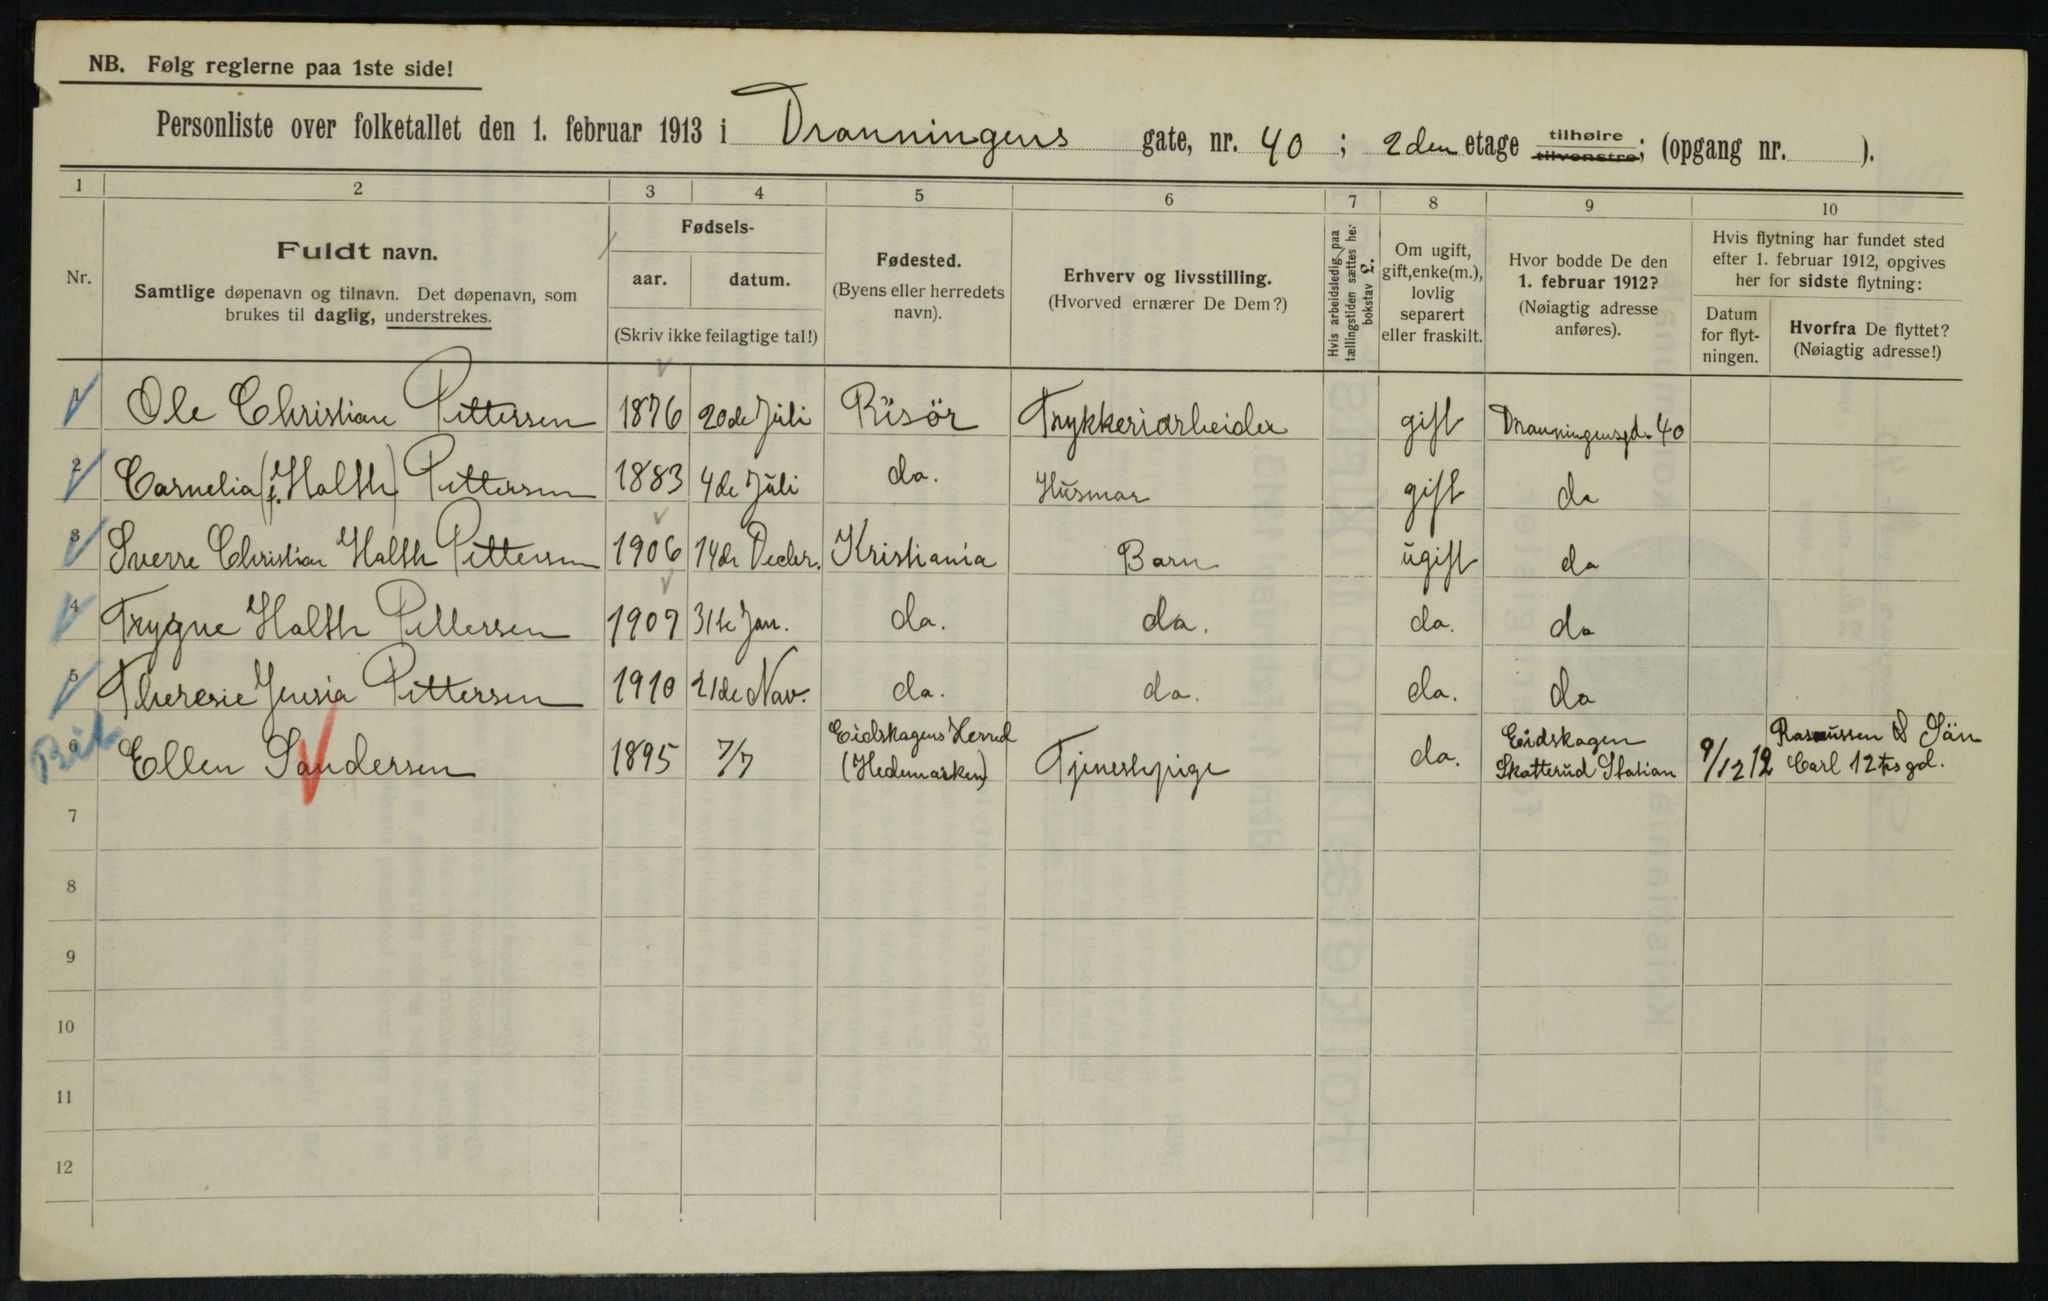 NB. Følg reglerne paa 1ste side!
Personliste over folketallet den 1. februar 1913 i Dronningens gate, nr. 40; 2den etage tilhøire tilvenstre; (opgang nr. ).
1 2 3 4 5 6 7 8 9 10
Nr.
Fuldt navn.
Samtlige døpenavn og tilnavn. Det døpenavn, som
brukes til daglig, understrekes.
Fødsels-
aar. datum.
(Skriv ikke feilagtige tal!)
Fødested.
(Byens eller herredets
navn).
Erhverv og livsstilling.
(Hvorved ernærer De Dem?)
Hvis arbeidsledig paa
tællingstiden sættes her
bokstav L.
Om ugift,
gift, enke(m.),
lovlig
separert
eller fraskilt.
Hvor bodde De den
1. februar 1912?
(Nøiagtig adresse
anføres).
Hvis flytning har fundet sted
efter 1. februar 1912, opgives
her for sidste flytning:
Datum
for flyt-
ningen.
Hvorfra De flyttet?
(Nøiagtig adresse!)
1 Ole Christian Pettersen 1876 20de Juli Risör Trykkeriarbeider gift Dronningensgd. 40
2 Cornelia (f. Holth) Pettersen 1883 4de Juli do. Husmor gift do
3 Sverre Christian Holth Pettersen 1906 14de Decbr. Kristiania Barn ugift do
4 Trygve Holth Pettersen 1907 31te Jan. do. do. do. do
5 Theresie Jensia Pettersen 1910 21de Nov. do. do. do. do
6 Ellen Sandersen 1895 7/7 Eidskogens Herred (Hedemarken) Tjenestepige do. Eidskogen Skotterud Station 9/12 12 Rasmussen & Sön Carl 12tes gd.
7
8
9
10
11
12